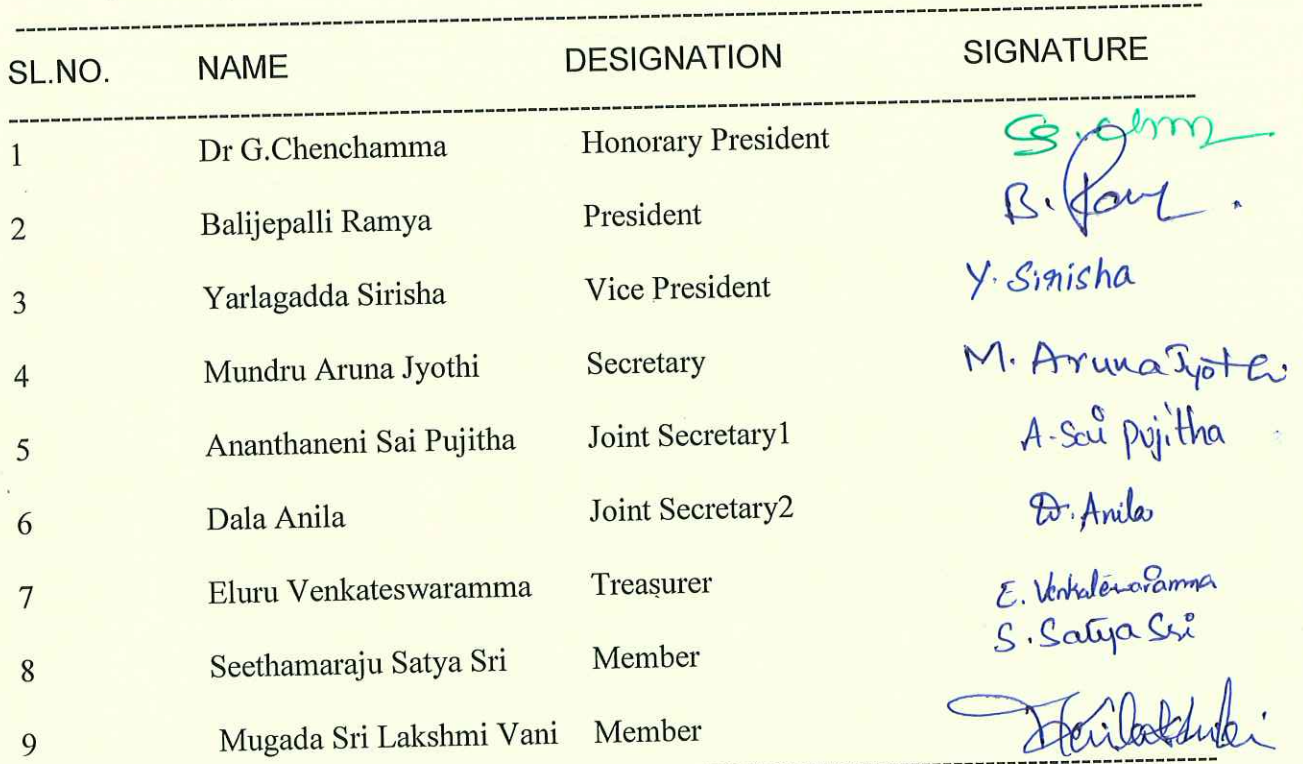 SL.NO. NAME DESIGNATION SIGNATURE
1 Dr G.Chenchamma Honorary President
2 Balijepalli Ramya President B.
3 Yarlagadda Sirisha Vice President Y. Sirisha
4 Mundru Aruna Jyothi Secretary M. Aruna Jyothi
5 Ananthaneni Sai Pujitha Joint Secretary1 A. Sai Pujitha
6 Dala Anila Joint Secretary2 D. Anila
7 Eluru Venkateswaramma Treasurer E. Venkateswaramma
8 Seethamaraju Satya Sri Member S. Satya Sri
9 Mugada Sri Lakshmi Vani Member